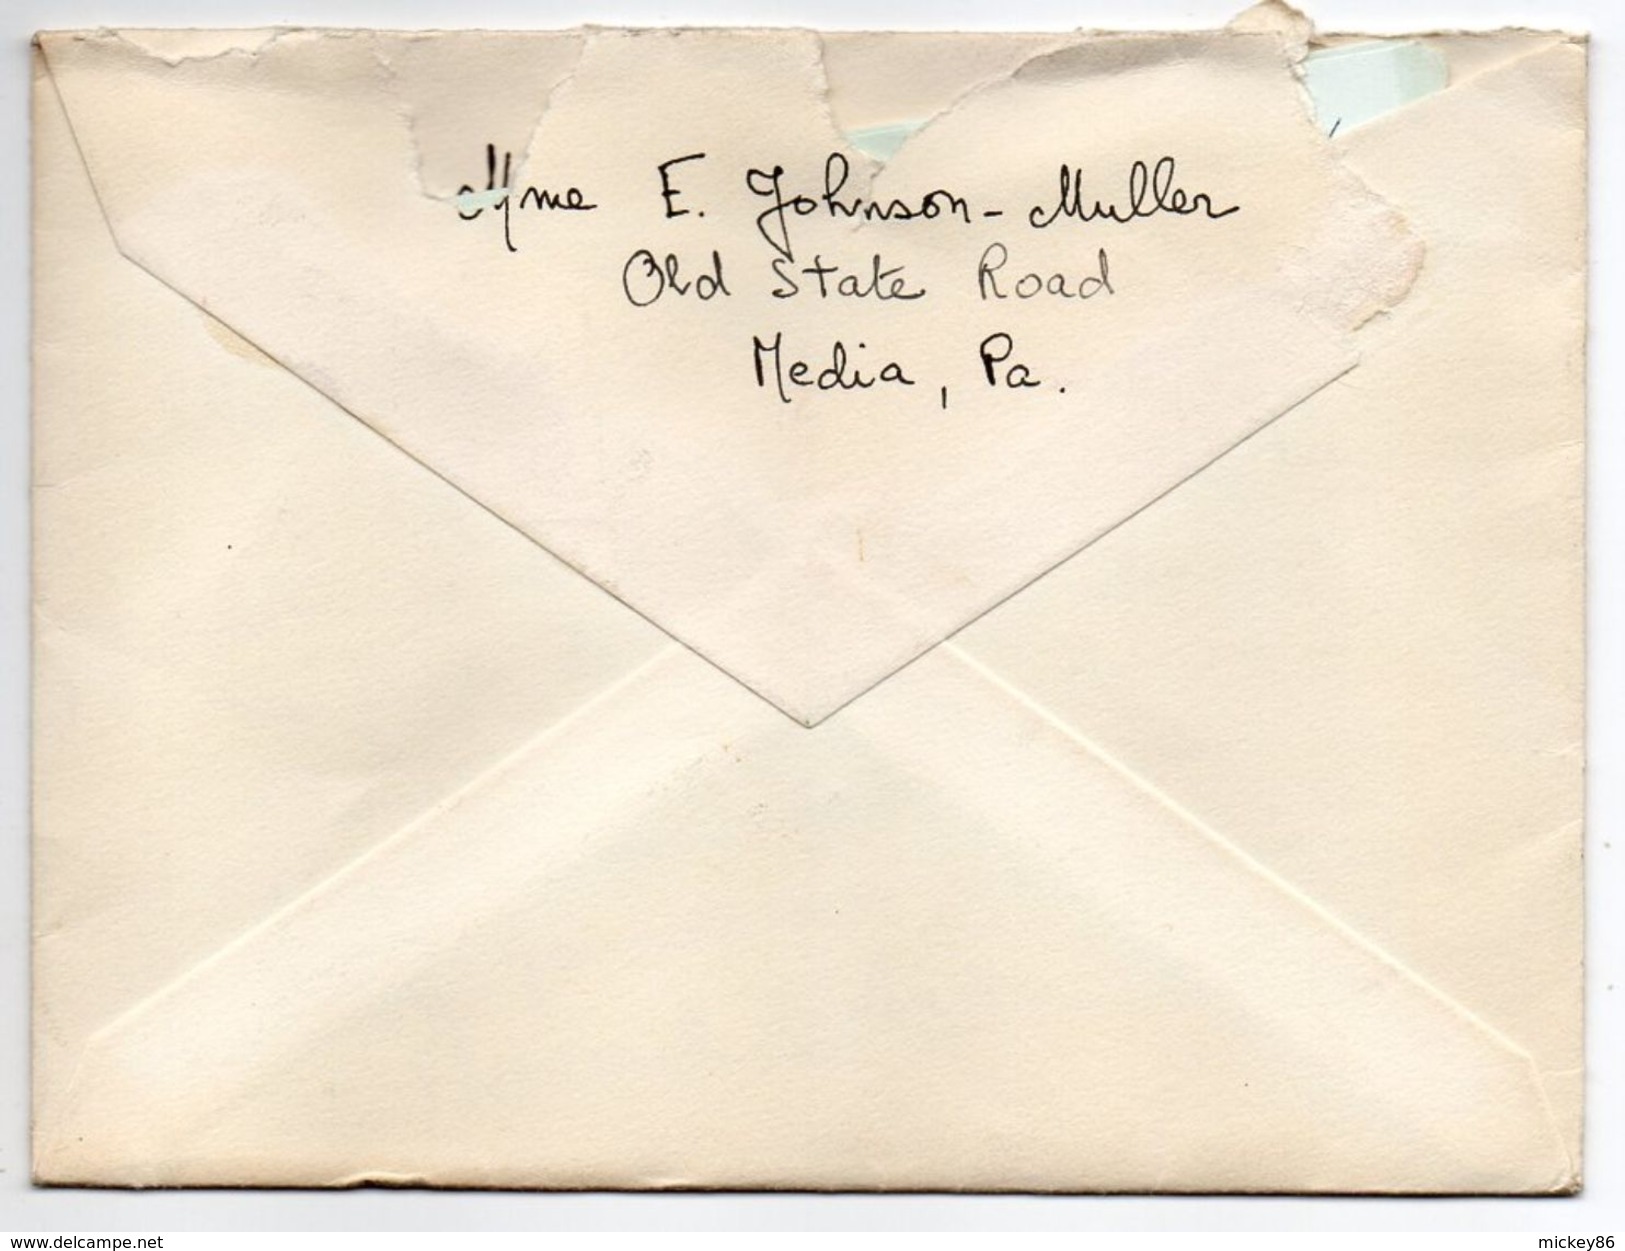 Mme E. Johnson-Muller
Old State Road
Media, Pa.
www.delcampe.net
mickey86